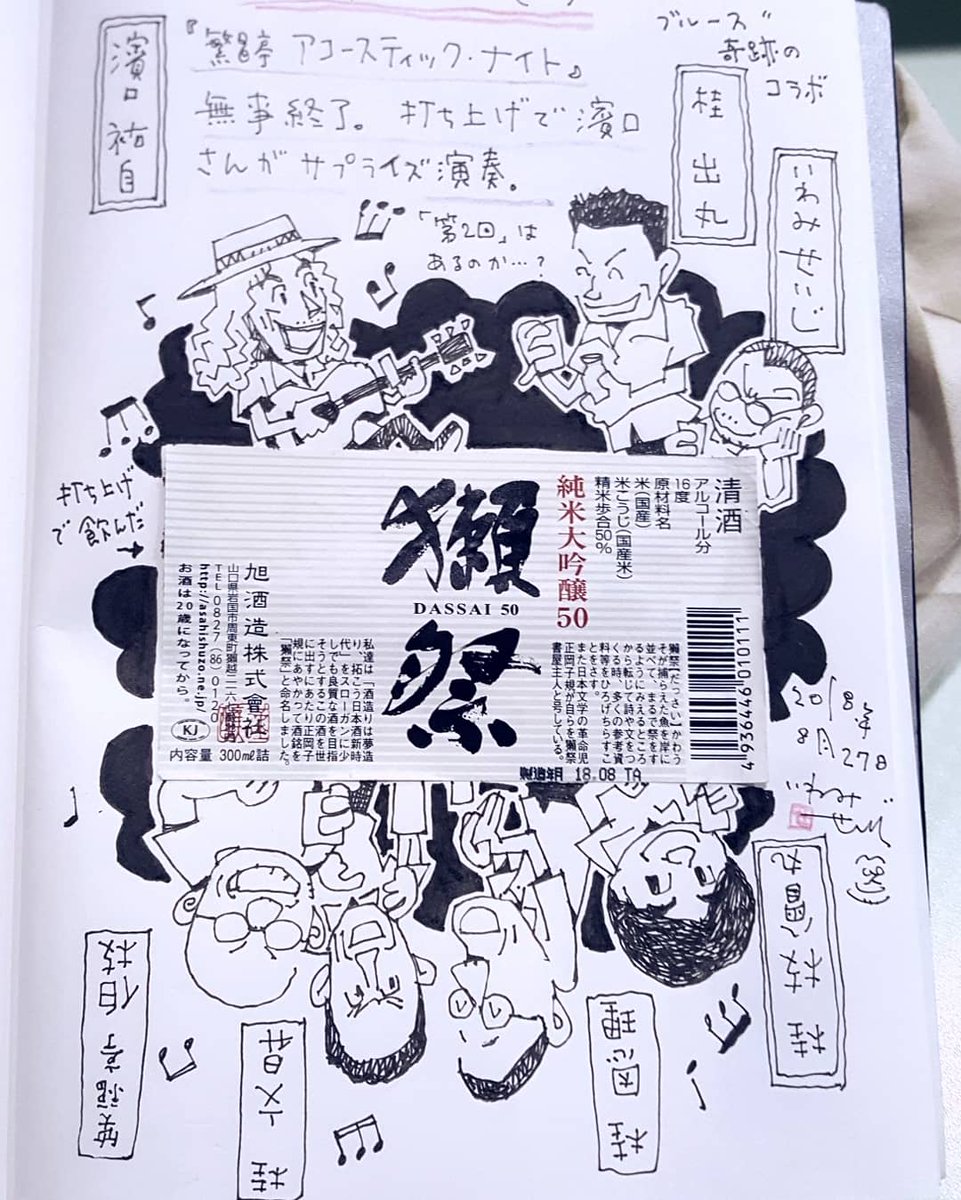 ブルース
奇跡の
コラボ
『繁昌亭 アコースティック・ナイト』
無事終了。 打ち上げで 濱口
さんが サプライズ演奏。
濱口祐自
桂出丸
いわみせいじ
「第2回」は
あるのか…?
打ち上げ
で飲んだ
→
清酒
アルコール分
16度
原材料名
米(国産)
米こうじ(国産米)
精米歩合50%
純米大吟醸50
獺祭
DASSAI 50
獺祭“だっさい”かわう
そが捕らえた魚を岸に
並べて、まるで祭をす
るようにみえるところ
から転じて詩や文をつ
くる時、多くの参考資
料等をひろげちらすこ
とをさす。
また日本文学の革命児
正岡子規が自らを獺祭
書屋主人と号している。
私達は「酒造りは夢造
り、拓こう日本酒新時
代」をスローガンに少
しでも良質な酒を目指
そうとするこの酒を世
に出すにあたり正岡子
規にあやかって酒銘を
「獺祭」と命名しました。
旭酒造株式會社
山口県岩国市周東町獺越二一六七―四
TEL0827(86)0120
http://asahishuzo.ne.jp/
お酒は20歳になってから。
KJ
内容量 300㎖詰
製造年月 18.08 TA
4936446010111
2018年
8月27日
いわみせいじ
桂枝曾丸
桂恩理
桂文昇
笑福亭伯枝